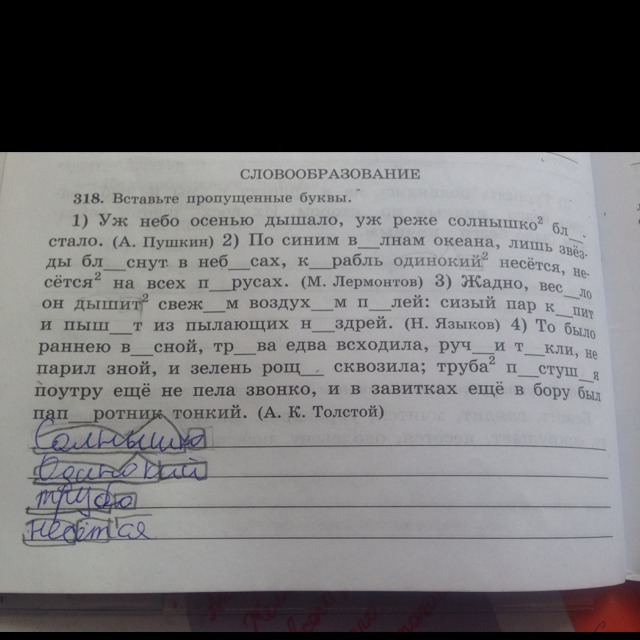 СЛОВООБРАЗОВАНИЕ
318. Вставьте пропущенные буквы.
1) Уж небо осенью дышало, уж реже солнышко² бл__-
стало. (А. Пушкин) 2) По синим в__лнам океана, лишь звёз-
ды бл__снут в неб__сах, к__рабль одинокий² несётся, не-
сётся² на всех п__русах. (М. Лермонтов) 3) Жадно, вес__ло
он дышит² свеж__м воздух__м п__лей: сизый пар к__пит
и пыш__т из пылающих н__здрей. (Н. Языков) 4) То было
раннею в__сной, тр__ва едва всходила, руч__и т__кли, не
парил зной, и зелень рощ__ сквозила; труба² п__стуш__я
поутру ещё не пела звонко, и в завитках ещё в бору был
пап__ротник тонкий. (А. К. Толстой)
Солнышко
Одинокий
труба
несётся